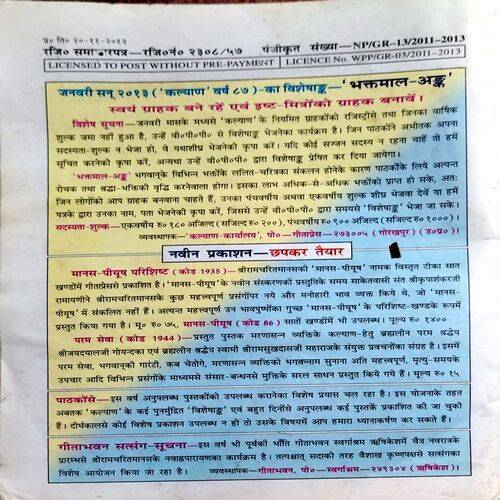 प्र० ति० २०-११-२०१२
रजि० समाचारपत्र—रजि०नं० २३०८/५७ पंजीकृत संख्या—NP/GR-13/2011-2013
LICENSED TO POST WITHOUT PRE-PAYMENT LICENCE No. WPP/GR-03/2011-2013
जनवरी सन् २०१३ ('कल्याण' वर्ष ८७)-का विशेषाङ्क—'भक्तमाल-अङ्क'
स्वयं ग्राहक बने रहें एवं इष्ट-मित्रोंको ग्राहक बनावें।
विशेष सूचना—जनवरी मासके मध्यसे 'कल्याण' के नियमित ग्राहकोंको रजिस्ट्रीसे तथा जिनका वार्षिक
शुल्क जमा नहीं हुआ है, उन्हें वी०पी०पी० से विशेषाङ्क भेजनेका कार्यक्रम है। जिन पाठकोंने अभीतक अपना
सदस्यता-शुल्क न भेजा हो, वे यथाशीघ्र भेजनेकी कृपा करें। यदि कोई सज्जन सदस्य न रहना चाहें तो हमें
सूचित करनेकी कृपा करें, अन्यथा उन्हें वी०पी०पी० द्वारा विशेषाङ्क प्रेषित कर दिया जायेगा।
'भक्तमाल-अङ्क' भगवान्के विभिन्न भक्तोंके ललित-चरित्रका संकलन होनेके कारण पाठकोंके लिये अत्यन्त
रोचक तथा श्रद्धा-भक्तिकी वृद्धि करनेवाला होगा। इसका लाभ अधिक-से-अधिक भक्तोंको प्राप्त हो सके, अतः
जिन लोगोंको आप ग्राहक बनवाना चाहते हैं, उनका पंचवर्षीय अथवा एकवर्षीय शुल्क शीघ्र भेजवा देवें या हमें
पत्रके द्वारा उनका नाम, पता भेजनेकी कृपा करें, जिससे उन्हें वी०पी०पी० द्वारा समयसे 'विशेषाङ्क' भेजा जा सके।
सदस्यता-शुल्क—एकवर्षीय रु० १८० अजिल्द (सजिल्द रु० २००), पंचवर्षीय रु० ९०० अजिल्द (सजिल्द रु० १०००)।
व्यवस्थापक—'कल्याण-कार्यालय', पो०—गीताप्रेस—२७३००५ (गोरखपुर) (उ०प्र०)।
नवीन प्रकाशन—छपकर तैयार
मानस-पीयूष परिशिष्ट (कोड 1935)—श्रीरामचरितमानसकी 'मानस-पीयूष' नामक विस्तृत टीका सात
खण्डोंमें गीताप्रेससे प्रकाशित है। 'मानस-पीयूष' के नवीन संस्करणकी प्रस्तुतिके समय साकेतवासी संत श्रीकृपाशंकरजी
रामायणीने श्रीरामचरितमानसके कुछ महत्त्वपूर्ण प्रसंगोंपर नये और मनोहारी भाव व्यक्त किये थे, जो 'मानस-
पीयूष' में संकलित नहीं हैं। अत्यन्त महत्त्वपूर्ण उन भावपुष्पोंका गुच्छ 'मानस-पीयूष' के परिशिष्ट-खण्डके रूपमें
प्रस्तुत किया गया है। मू० रु० ७५, मानस-पीयूष (कोड 86) सातों खण्डोंमें भी उपलब्ध। मूल्य रु० १४००
परम सेवा (कोड 1944)—प्रस्तुत पुस्तक मरणासन्न व्यक्तिके कल्याण-हेतु ब्रह्मलीन परम श्रद्धेय
श्रीजयदयालजी गोयन्दका एवं ब्रह्मलीन श्रद्धेय स्वामी श्रीरामसुखदासजी महाराजके संयुक्त प्रवचनोंका संग्रह है। इसमें
परम सेवा, भगवान्की गारंटी, कब चेतोगे, मरणासन्न व्यक्तिको भगवन्नाम सुनाना अति महत्त्वपूर्ण, मृत्यु-समयके
उपचार आदि विभिन्न प्रसंगोंके माध्यमसे संसार-बन्धनसे मुक्तिके सरल साधन प्रस्तुत किये गये हैं। मूल्य रु० १५
पाठकोंसे—इस वर्ष अनुपलब्ध पुस्तकोंको उपलब्ध करानेका विशेष प्रयास चल रहा है। इस योजनाके तहत
अबतक 'कल्याण' के कई पुनर्मुद्रित 'विशेषाङ्क' एवं बहुत दिनोंसे अनुपलब्ध कई पुस्तकें प्रकाशित की जा चुकी
हैं। दीर्घकालसे कोई विशेष प्रकाशन उपलब्ध न हो तो उसके विषयमें आप हमारा ध्यानाकर्षण कर सकते हैं।
गीताभवन सत्संग-सूचना—इस वर्ष भी पूर्वकी भाँति गीताभवन स्वर्गाश्रम ऋषिकेशमें चैत्र नवरात्रके
प्रारम्भसे श्रीरामचरितमानसके नवाह्नपारायणका कार्यक्रम है। तत्पश्चात् सदाकी तरह वैशाख कृष्णपक्षसे सत्संगका
विशेष आयोजन किया जा रहा है। व्यवस्थापक—गीताभवन, पो०—स्वर्गाश्रम—२४९३०४ (ऋषिकेश)।